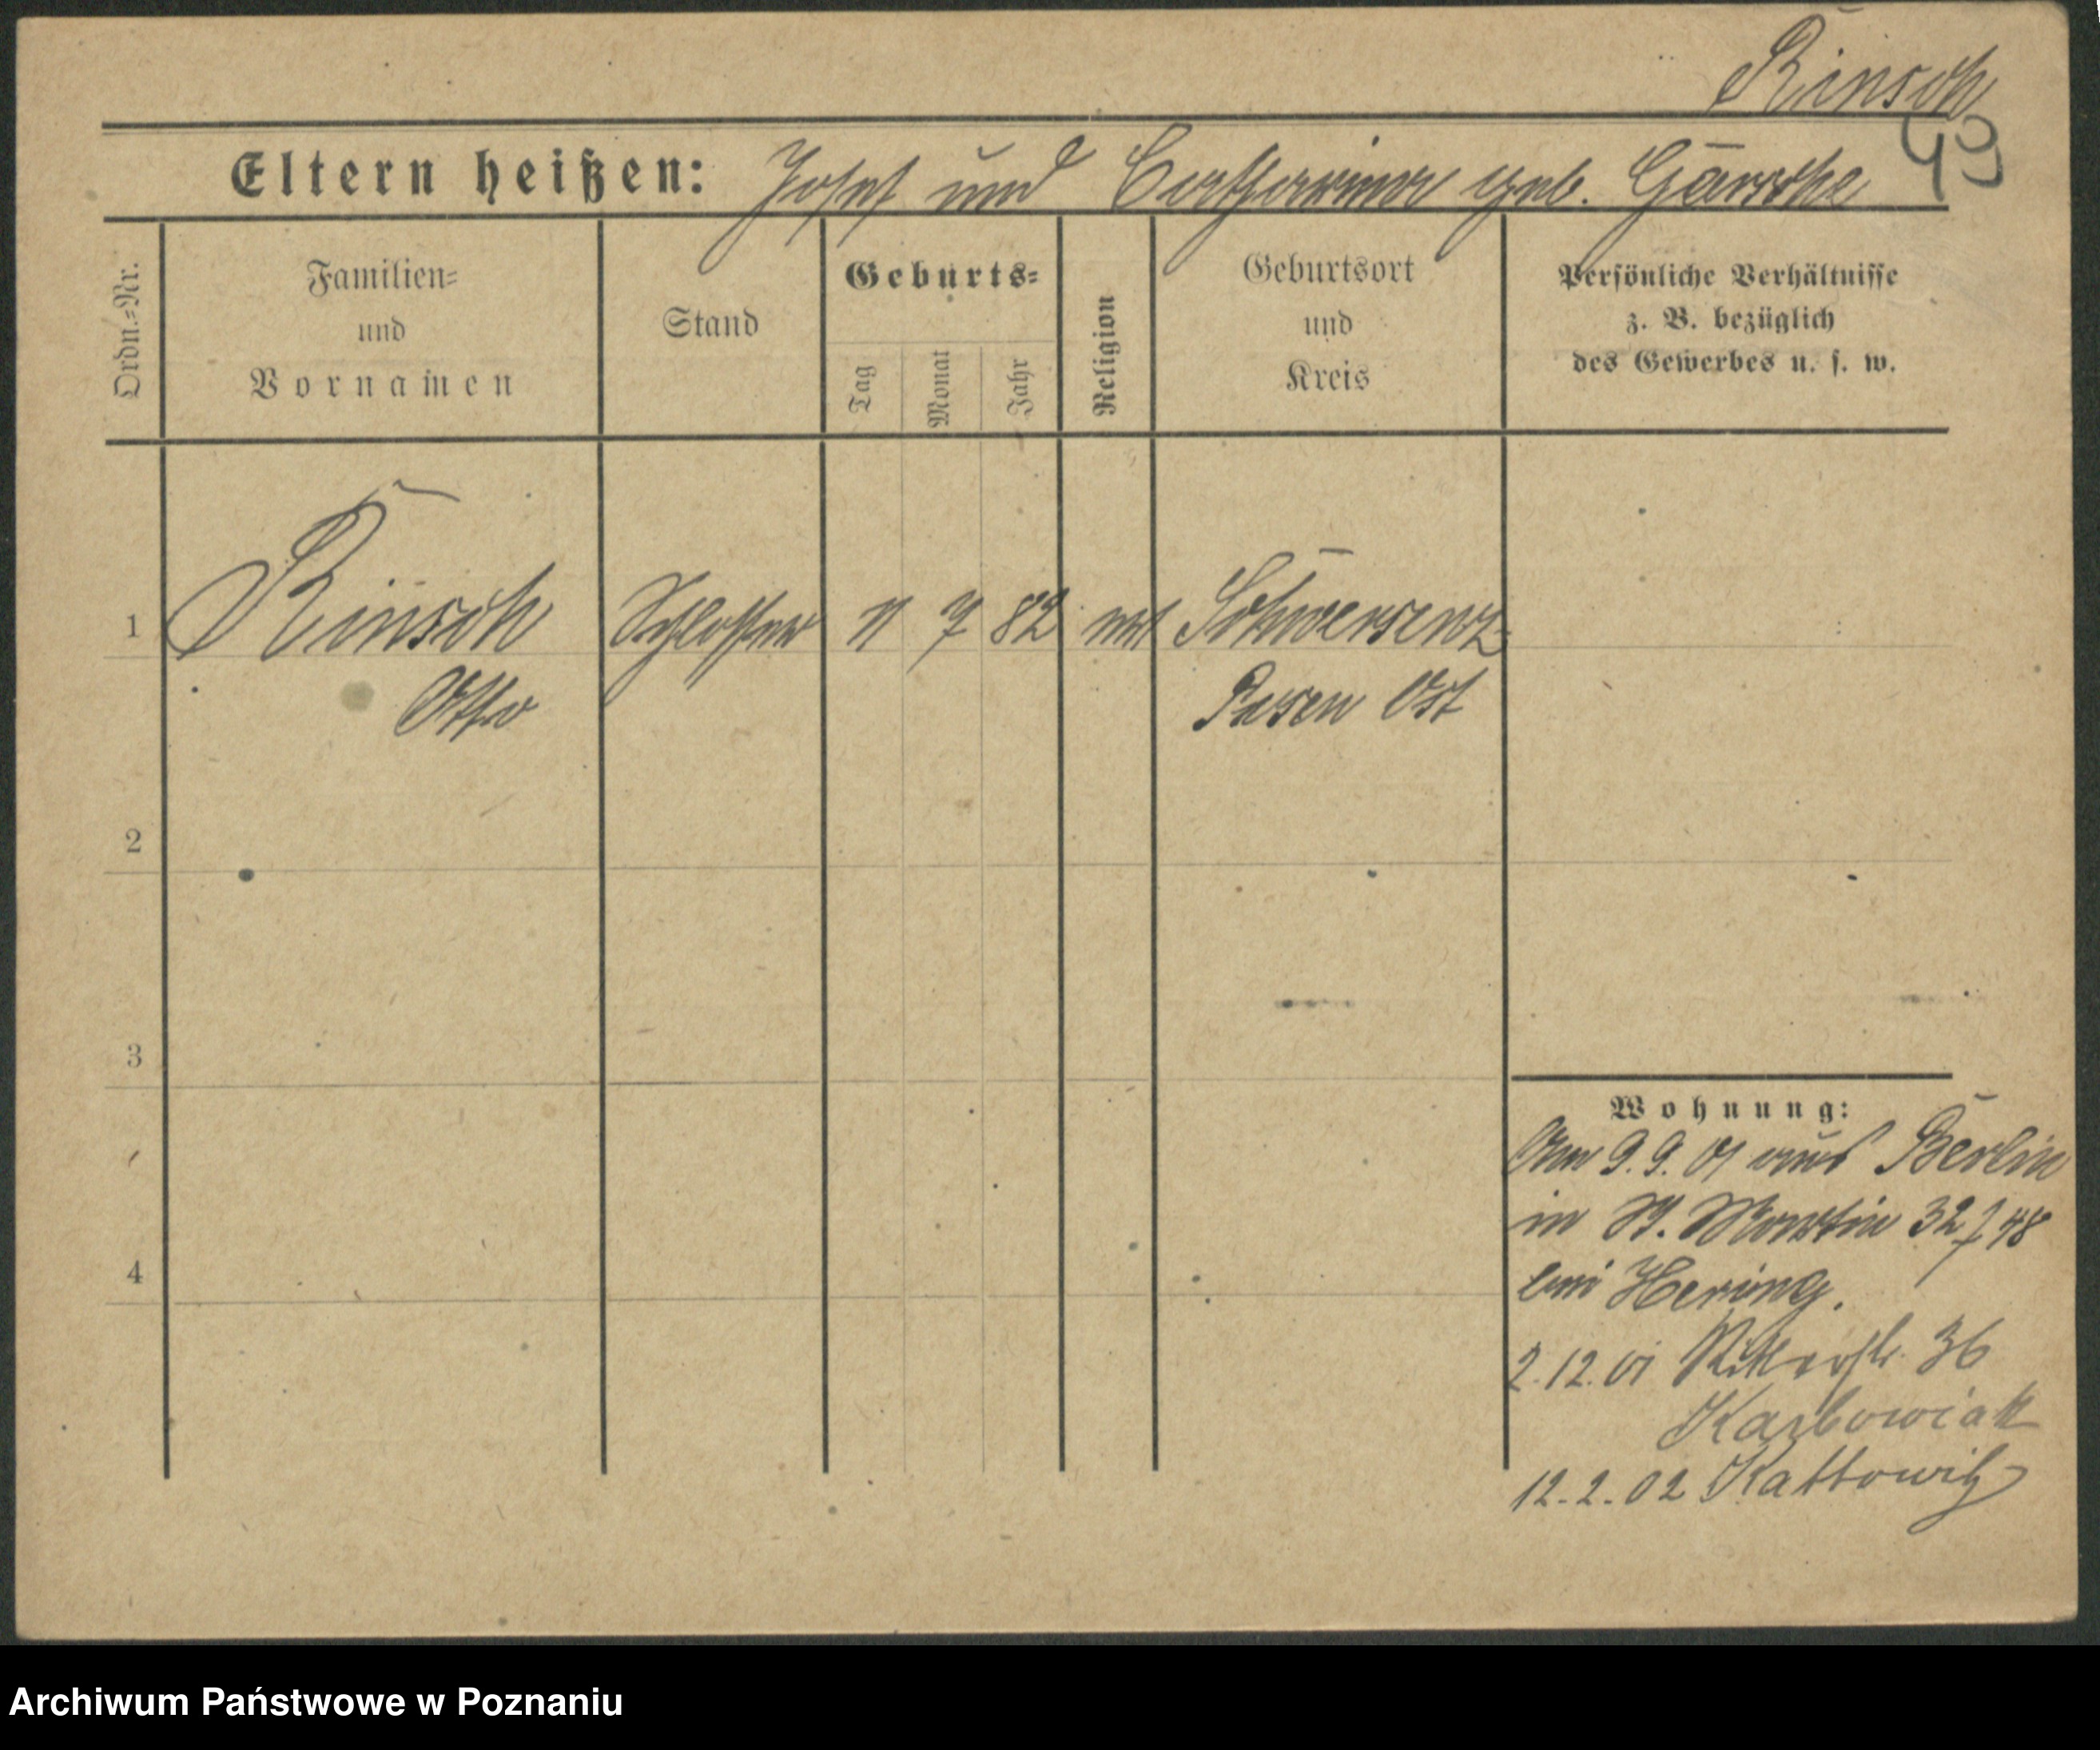 Rinsch
49
Eltern heißen: Josef und Catharina geb. Gänsche
Ordn.-Nr.
Familien-
und
Vornamen
Stand
Geburts-
Tag
Monat
Jahr
Religion
Geburtsort
und
Kreis
Persönliche Verhältnisse
z. B. bezüglich
des Gewerbes u. s. w.
1 Rinsch Schlosser 11 7 82 Schwersenz
Otto Posen Ost
2
3
4
Wohnung:
Am 9.9.01 aus Berlin
in St. Martin 32 f 48
bei Hering.
2.12.01 Ritterstr. 36
Karbowiak
12.2.02 Kattowitz
Archiwum Państwowe w Poznaniu